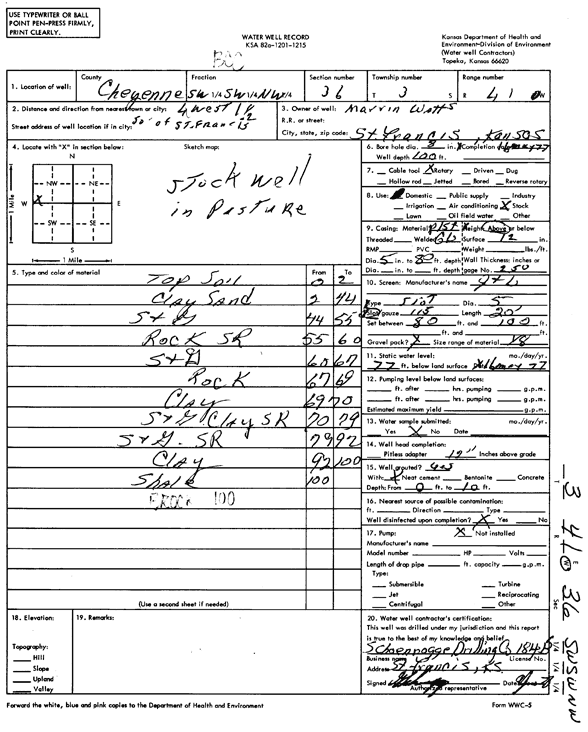 USE TYPEWRITER OR BALL
POINT PEN-PRESS FIRMLY,
PRINT CLEARLY.
WATER WELL RECORD
KSA 82a-1201-1215
Kansas Department of Health and
Environment-Division of Environment
(Water well Contractors)
Topeka, Kansas 66620
1. Location of well: County Cheyenne Fraction SW 1/4 SW 1/4 NW 1/4 Section number 36 Township number T 3 S Range number R 41 W
2. Distance and direction from nearest town or city: 4 West 1
Street address of well location if in city: So. of St. Francis
3. Owner of well: Marvin Watts
R.R. or street:
City, state, zip code: St Francis, Kansas
4. Locate with "X" in section below:
Sketch map:
N
NW NE
W X E
SW SE
S
1 Mile
1 Mile
Stock well
in Pasture
5. Type and color of material From To
Top Soil 0 2
Clay Sand 2 44
S+G 44 55
Rock SR 55 60
S+G 60 67
Rock 67 69
Clay 69 70
S+G Clay SR 70 79
S+G. SR 79 92
Clay 92 100
Shale 100
100
(Use a second sheet if needed)
6. Bore hole dia. 8 in. Completion date
Well depth 100 ft.
7. Cable tool X Rotary Driven Dug
Hollow rod Jetted Bored Reverse rotary
8. Use: Domestic Public supply Industry
Irrigation Air conditioning X Stock
Lawn Oil field water Other
9. Casing: Material plst Height: Above or below
Threaded Welded Surface 12 in.
RMP PVC Weight lbs./ft.
Dia. 5 in. to 80 ft. depth Wall Thickness: inches or
Dia. in. to ft. depth gage No. 250
10. Screen: Manufacturer's name
Type slot Dia. 5
Slot/gauze Length 20'
Set between 80 ft. and 100 ft.
ft. and ft.
Gravel pack? X Size range of material
11. Static water level: mo./day/yr.
77 ft. below land surface
12. Pumping level below land surfaces:
ft. after hrs. pumping g.p.m.
ft. after hrs. pumping g.p.m.
Estimated maximum yield g.p.m.
13. Water sample submitted: mo./day/yr.
Yes X No Date
14. Well head completion:
Pitless adapter 12" Inches above grade
15. Well grouted? yes
With: X Neat cement Bentonite Concrete
Depth: From 0 ft. to 10 ft.
16. Nearest source of possible contamination:
ft. Direction Type
Well disinfected upon completion? X Yes No
17. Pump: X Not installed
Manufacturer's name
Model number HP Volts
Length of drop pipe ft. capacity g.p.m.
Type:
Submersible Turbine
Jet Reciprocating
Centrifugal Other
18. Elevation:
Topography:
Hill
Slope
Upland
Valley
19. Remarks:
20. Water well contractor's certification:
This well was drilled under my jurisdiction and this report
is true to the best of my knowledge and belief.
Schoenrogge Drilling Co 184B
Business name License No.
Address St Francis, KS
Signed Date
Authorized representative
Forward the white, blue and pink copies to the Department of Health and Environment
Form WWC-5
T 3 R 41 E W Sec 36 1/4 1/4 1/4 SW SW NW